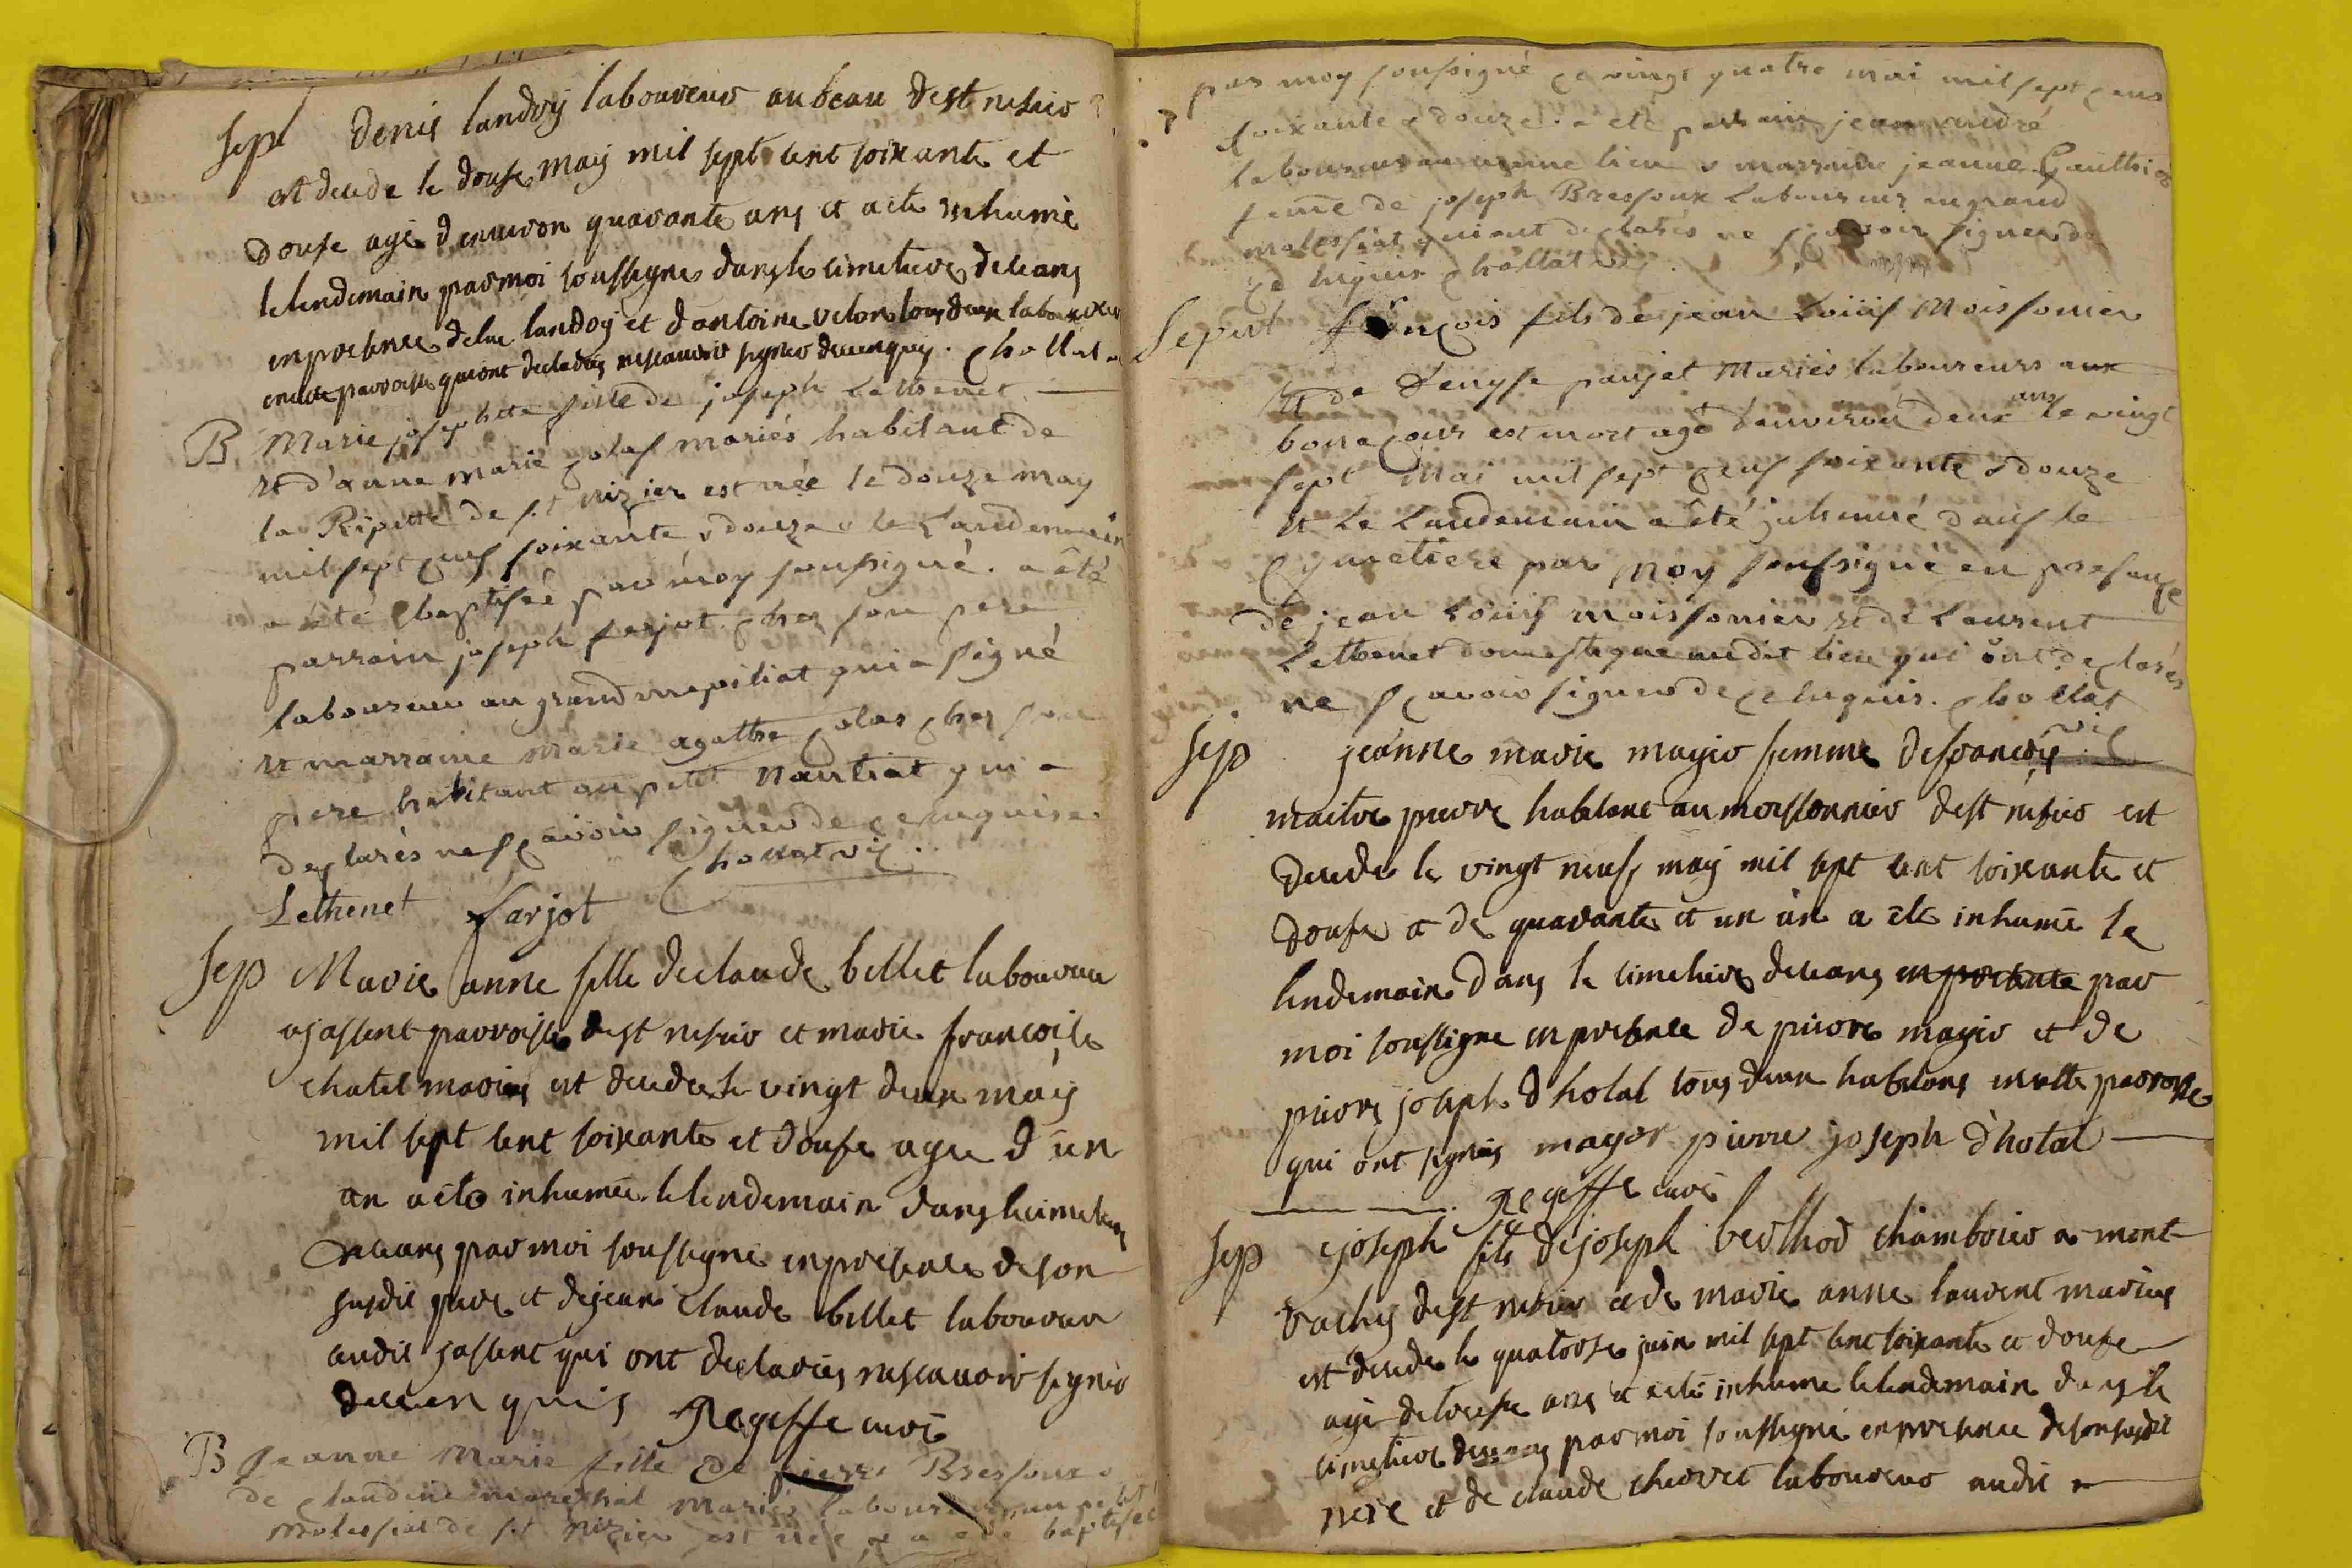 Sep denis landoy laboureur au beau de st nesier
est decede le douse may mil sept cent soixante et
douse agé d'enuiron quarante ans et a eté inhumé
le lendemain par moi soussigné dans le cimetiere de ceans
en presence de luc landoy et d'antoine velon tous deux laboureurs
en cette parroisse qui ont declarés ne scauoir signer de ce enquis. Chollat
B Marie josephte fille de joseph Lethenet
et d'anne marie colas mariés habitant de
la Ripette de st nizier est née le douze may
mil sept cens soixante & douze & le Landemain
a été baptisée par moy soussigné. a été
parrain joseph farjot chez son pere
laboureur au grand qui a signé
et marraine Marie agathe colas chez son
pere habitant au petit Nantiat qui a
declarés ne scavoir signer de ce enquise.
Chollat vic.
Lethenet farjot
Sep Marie anne fille de claude billet laboureur
a jassent parroisse de st nesier et marie francoise
chatel mariés est decedee le vingt deux may
mil sept cent soixante et douse agee d'un
an a eté inhumée le lendemain dans le cimetiere
de ceans par moi soussigné en presence de son
susdit pere et de jean claude billet laboureur
audit jassent qui ont declarés ne scauoir signer
de ce enquis Regeffe curé
B Jeanne Marie fille de pierre Bressoux &
de claudine marechal mariés laboureurs au petit
molessiat de st Nizier est née & a été baptisée
par moy soussigné ce vingt quatre mai mil sept cens
soixante & douze. a été parrain jean
laboureur au meme lieu & marraine jeanne Gauthier
femme de joseph Bressoux Laboureur au grand
molessiat qui ont declarés ne scavoir signer de
ce enquis chollat vic.
Sepult francois fils de jean Louis Moissonier
et de Denyse paujet Mariés laboureurs aux
bons cour est mort agé d'anviron deux ans le vingt
sept Mai mil sept cens soixante & douze
et Le Landemain a été inhumé dans le
Cymetiere par Moy soussigné en presance
de jean Louis moissonier et de Laurent
Lethenet domestique audit lieu qui ont declarés
ne scavoir signer de ce enquis. chollat
vic
Sep jeanne marie magio femme de francois
maitre pierre habitant au moissonnier de st nesier est
decedee le vingt neuf may mil sept cent soixante et
douse a de quarante et un an a eté inhumé le
lendemain dans le cimetiere de ceans en presence par
moi soussigné en presence de pierre magio et de
pierre joseph d'hotal tous deux habitans en cette parroisse
qui ont signés mayor pierre joseph d'hotal
Regeffe curé
Sep joseph fils de joseph berthod chambrier a mont
vachy de st nesier et de marie anne laurent mariés
est decede le quatorse juin mil sept cent soixante et douse
agé de treise ans a eté inhumé le lendemain dans le
cimetiere de ceans par moi soussigné en presence de son susdit
pere et de claude chevret laboureur audit